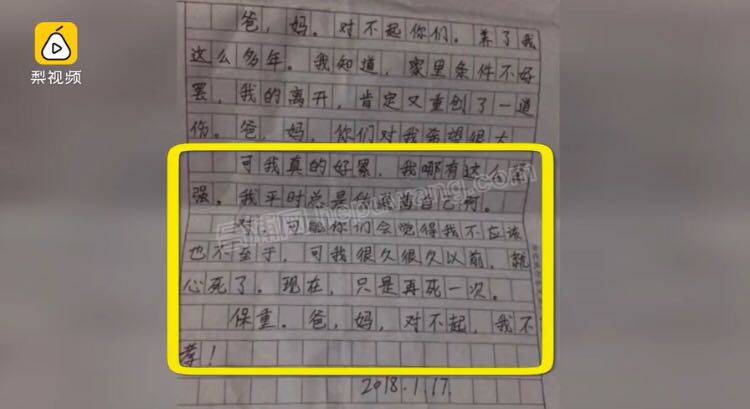 梨视频
爸，妈。对不起你们。养了我
这么多年。我知道，家里条件不好
罢，我的离开，肯定又重创了一道
伤。爸，妈，你们对我希望很大
可我真的好累，我哪有这么坚
强。我平时总是伪
对，可能你们会觉得我不应该
也不至于，可我很久很久以前，就
心死了。现在，只是再死一次。
保重。爸，妈，对不起，我不
孝！
2018.1.17.